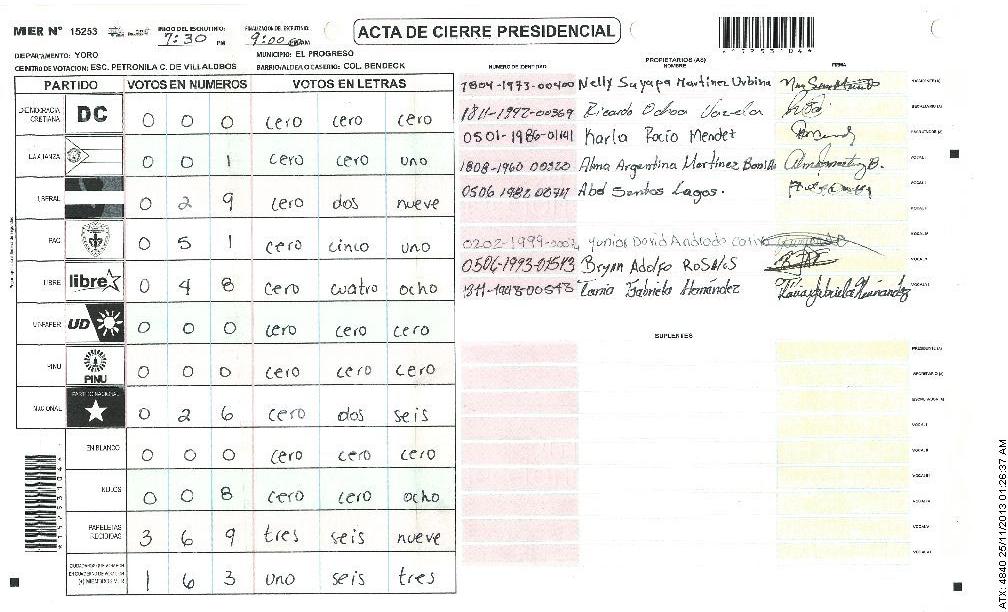 MER N° 15253
INICIO DEL ESCRUTINIO: 7:30 PM
FINALIZACION DEL ESCRUTINIO: 9:00
ACTA DE CIERRE PRESIDENCIAL
DEPARTAMENTO: YORO
MUNICIPIO: EL PROGRESO
CENTRO DE VOTACION: ESC. PETRONILA C. DE VILLALOBOS
BARRIO/ALDEA O CASERIO: COL. BENDECK
PARTIDO VOTOS EN NUMEROS VOTOS EN LETRAS
DEMOCRACIA CRISTIANA DC 0 0 0 cero cero cero
LA ALIANZA 0 0 1 cero cero uno
LIBERAL 0 2 9 cero dos nueve
PAC 0 5 1 cero cinco uno
LIBRE libre 0 4 8 cero cuatro ocho
UD 0 0 0 cero cero cero
PINU PINU 0 0 0 cero cero cero
NACIONAL PARTIDO NACIONAL 0 2 6 cero dos seis
EN BLANCO 0 0 0 cero cero cero
NULOS 0 0 8 cero cero ocho
PAPELETAS RECIBIDAS 3 6 9 tres seis nueve
1 6 3 uno seis tres
PROPIETARIOS (AS)
NUMERO DE IDENTIDAD NOMBRE FIRMA
1804-1973-00400 Nelly Sayapa Martinez Urbina PRESIDENTE (A)
1811-1992-00369 Ricardo Ochoa SECRETARIO (A)
0501-1986-01141 Karla Rocio Mendez ESCRUTADOR (A)
1808-1960 00320 Alma Argentina Martinez Bonilla VOCAL I
0506 1982 Abel Santos Lagos. VOCAL II
VOCAL III
0202-1999- Yunior David Andrade VOCAL IV
0506-1993-01513 Bryan Adolfo ROSALES VOCAL V
Tania Gabriela Hernández Tania Gabriela Hernandez VOCAL VI
SUPLENTES
PRESIDENTE (A)
SECRETARIO (A)
ESCRUTADOR (A)
VOCAL I
VOCAL II
VOCAL III
VOCAL IV
VOCAL V
VOCAL VI
ATX: 4840 25/11/2013 01:26:37 AM